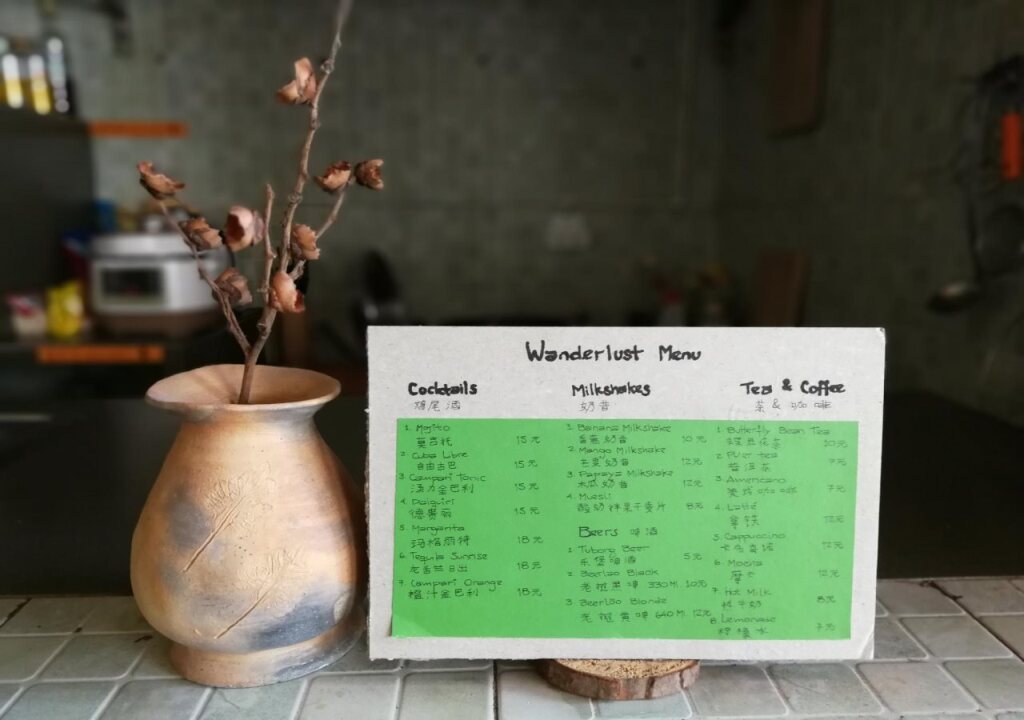 Wanderlust Menu
Cocktails
鸡尾酒
1. Mojito
莫吉托 15元
2. Cuba Libre
自由古巴 15元
3 Campari Tonic
汤力金巴利 15元
4. Daiquiri
15元
5. Margarita
玛格丽特 18元
6. Tequila Sunrise
龙舌兰日出 18元
7. Campari Orange
橙汁金巴利 18元
Milkshakes
奶昔
1. Banana Milkshake
香蕉奶昔 10元
2. Mango Milkshake
芒果奶昔 12元
3. Papaya Milkshake
木瓜奶昔 12元
4. Muesli
酸奶 干麦片 8元
Beers 啤酒
1. Tuborg Beer
乐堡啤酒 5元
2. Beerlao Black
老挝黑啤 330Ml 10元
3 Beerlao Blonde
老挝黄啤 640Ml 12元
Tea & Coffee
茶 & 咖啡
1. Butterfly Bean Tea
豆花茶 10元
2. PU'er tea
普洱茶 7元
3. Americano
美式咖啡 7元
4. Latte
拿铁 12元
5. Cappuccino
卡布奇诺 12元
6. Mocha
摩卡 12元
7. Hot Milk
热牛奶 8元
8. Lemonade
柠檬水 7元